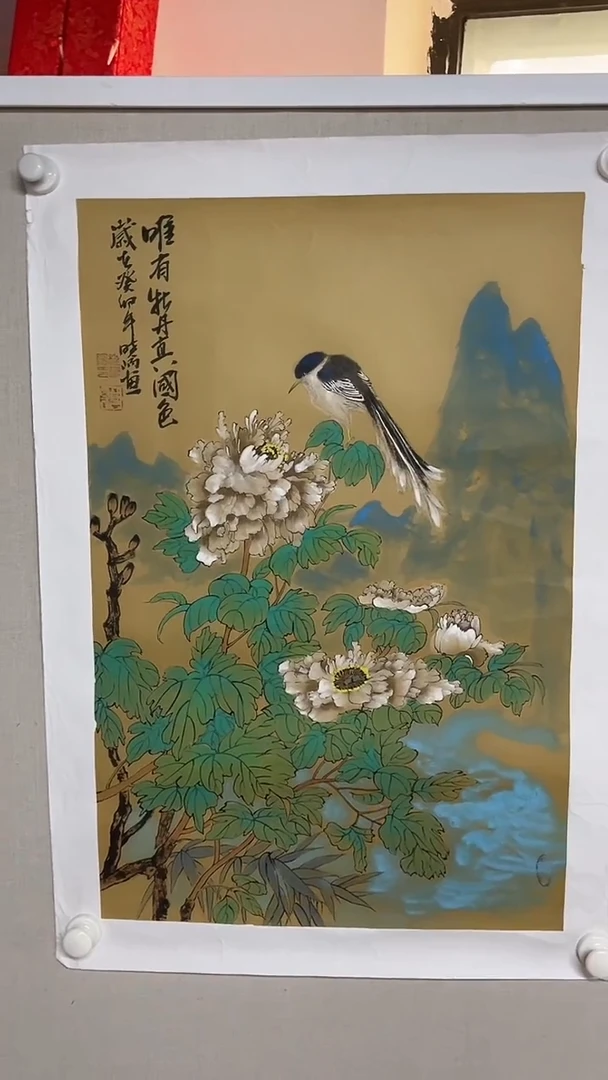 唯有牡丹真國色
歲在癸卯年